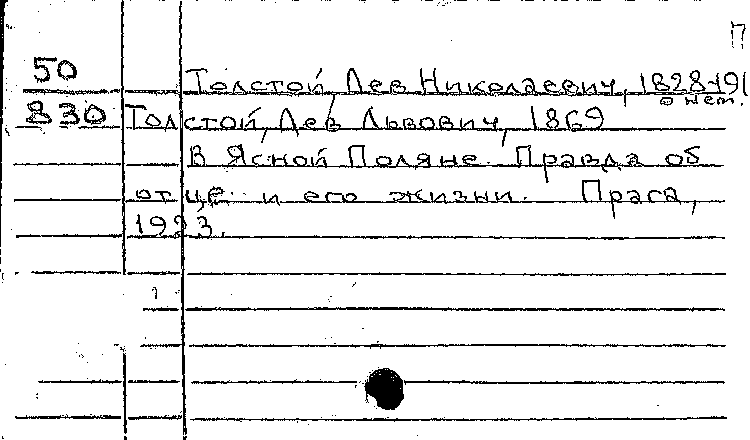 П
50 Толстой, Лев Николаевич, 1828-191
о нем.
830 Толстой, Лев Львович, 1869
В Ясной Поляне. Правда об
отце и его жизни. Прага,
1923.